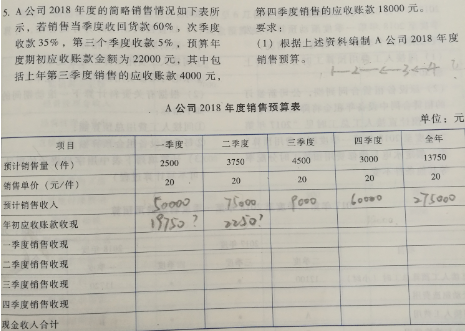 5. A公司2018年度的简略销售情况如下表所
示，若销售当季度收回货款60%，次季度
收款35%，第三个季度收款5%，预算年
度期初应收账款金额为22000元，其中包
括上年第三季度销售的应收账款4000元，
第四季度销售的应收账款18000元。
要求：
(1) 根据上述资料编制A公司2018年度
销售预算。
1—2—3—4
A公司2018年度销售预算表
单位：元
项目 一季度 二季度 三季度 四季度 全年
预计销售量（件） 2500 3750 4500 3000 13750
销售单价（元/件） 20 20 20 20 20
预计销售收入 50000 75000 9000 60000 275000
年初应收账款收现 19750? 2250?
一季度销售收现
二季度销售收现
三季度销售收现
四季度销售收现
现金收入合计